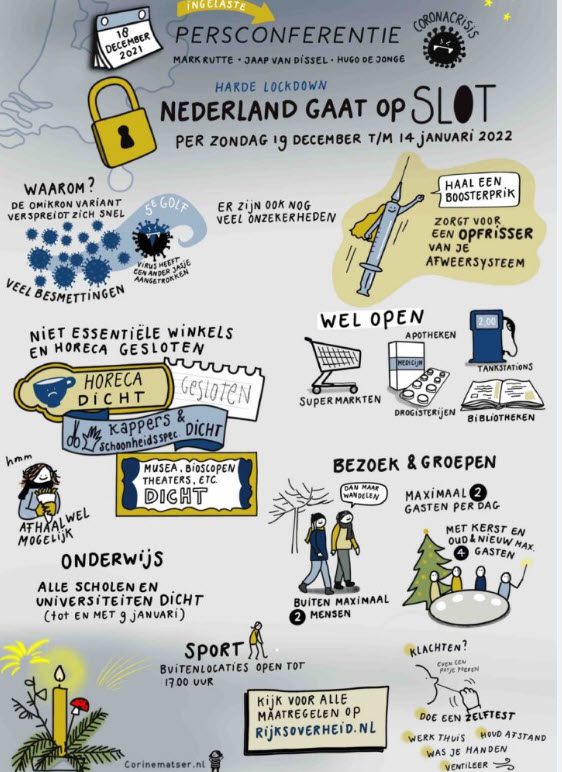 INGELASTE
18
DECEMBER
2021
PERSCONFERENTIE
MARK RUTTE • JAAP VAN DISSEL • HUGO DE JONGE
CORONACRISIS
HARDE LOCKDOWN
NEDERLAND GAAT OP SLOT
PER ZONDAG 19 DECEMBER T/M 14 JANUARI 2022
WAAROM?
DE OMIKRON VARIANT
VERSPREIDT ZICH SNEL
5E GOLF
VIRUS HEEFT
EEN ANDER JASJE
AANGETROKKEN
VEEL BESMETTINGEN
ER ZIJN OOK NOG
VEEL ONZEKERHEDEN
HAAL EEN
BOOSTERPRIK
ZORGT VOOR
EEN OPFRISSER
VAN JE
AFWEERSYSTEEM
NIET ESSENTIËLE WINKELS
EN HORECA GESLOTEN
HORECA
DICHT
GESLOTEN
KAPPERS &
SCHOONHEIDSSPEC. DICHT
MUSEA, BIOSCOPEN
THEATERS, ETC.
DICHT
hmm
AFHAAL WEL
MOGELIJK
WEL OPEN
SUPERMARKTEN
APOTHEKEN
MEDICIJN
DROGISTERIJEN
2,00
TANKSTATIONS
BIBLIOTHEKEN
BEZOEK & GROEPEN
DAN MAAR
WANDELEN
BUITEN MAXIMAAL
2 MENSEN
MAXIMAAL 2
GASTEN PER DAG
MET KERST EN
OUD & NIEUW MAX.
4 GASTEN
ONDERWIJS
ALLE SCHOLEN EN
UNIVERSITEITEN DICHT
(tot EN MET 9 JANUARI)
SPORT
BUITENLOCATIES OPEN TOT
17.00 UUR
KIJK VOOR ALLE
MAATREGELEN OP
RIJKSOVERHEID.NL
KLACHTEN?
EVEN EEN
POTJE POEREN
DOE EEN ZELFTEST
WERK THUIS
HOUD AFSTAND
WAS JE HANDEN
VENTILEER
Corinematser.nl